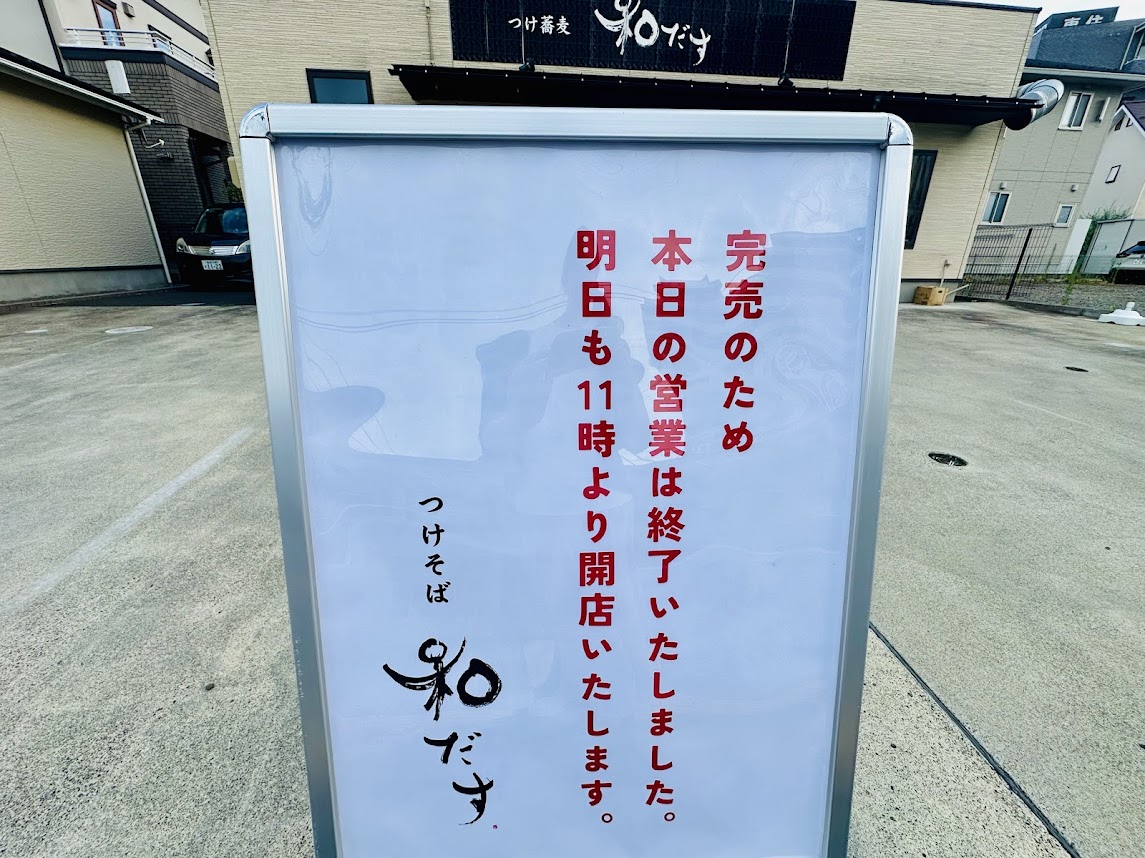 つけ蕎麦
和だす
完売のため
本日の営業は終了いたしました。
明日も11時より開店いたします。
つけそば
和だす